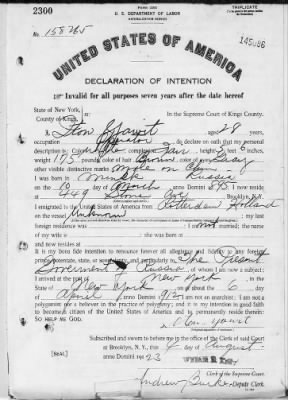 2300
FORM 2203
U. S. DEPARTMENT OF LABOR
NATURALIZATION SERVICE
TRIPLICATE
No. 158265
UNITED STATES OF AMERICA
DECLARATION OF INTENTION
Invalid for all purposes seven years after the date hereof
State of New York,
County of Kings,
In the Supreme Court of Kings County.
I, aged 28 years,
occupation , do declare on oath that my personal
description is: Color , complexion Fair, height 5 feet inches,
weight 175 pounds, color of hair Brown, color of eyes Gray
other visible distinctive marks Mole on Chin
I was born in Minsk Russia
on the 10 day of March, anno Domini ; I now reside
at 449 Stone , Brooklyn, N.Y.
I emigrated to the United States of America from Rotterdam Holland
on the vessel Unknown ; my last
foreign residence was ; I am not married; the name
of my wife is ; she was born at
and now resides at
It is my bona fide intention to renounce forever all allegiance and fidelity to any foreign
prince, potentate, state, or sovereignty, and particularly to The Present
Government of Russia, of whom I am now a subject;
I arrived at the port of New York, in the
State of New York, on or about the 6 day
of April, anno Domini 1912; I am not an anarchist; I am not a
polygamist nor a believer in the practice of polygamy; and it is my intention in good faith
to become a citizen of the United States of America and to permanently reside therein:
SO HELP ME GOD.
Subscribed and sworn to before me in the office of the Clerk of said Court
at Brooklyn, N. Y., this day of August
anno Domini 1923
[SEAL]
Clerk of the Supreme Court.
Deputy Clerk.